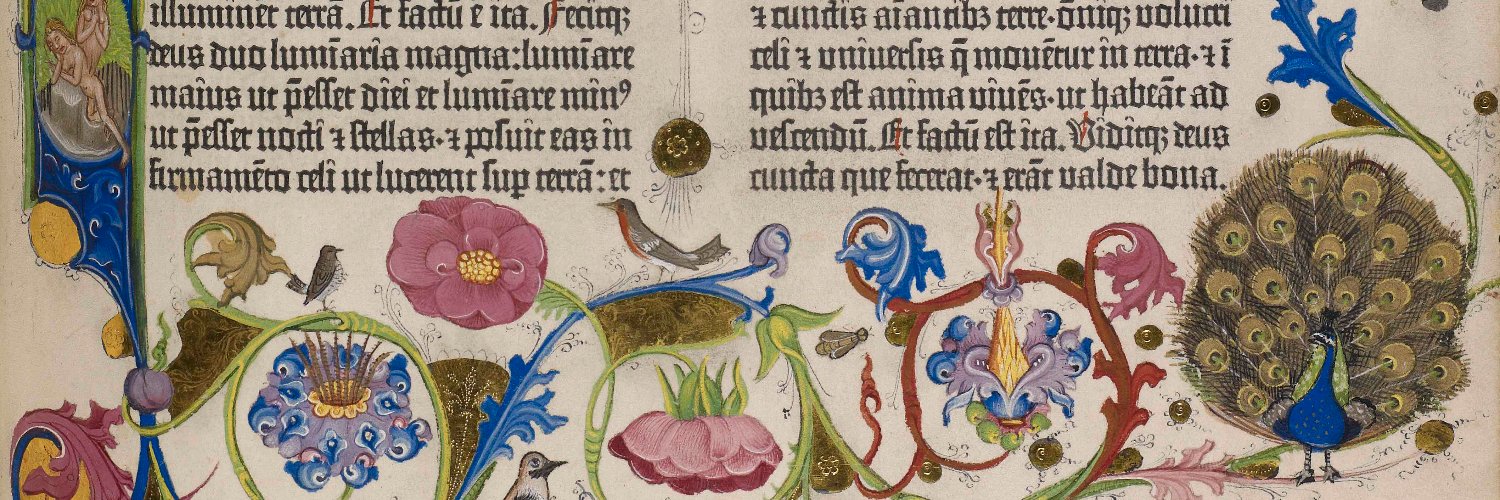 illuminet terrā. Et factū ē ita. Fecitqꝫ
deus duo lumīaria magna: lumīare
maius ut p̄esset diei et lumīare minꝰ
ut p̄esset nocti ⁊ stellas· ⁊ posuit eas in
firmamēto celi ut lucerent sup terrā: et
⁊ cunctis aīantibꝫ terre· ōniqꝫ volucri
celi ⁊ universis q̄ movētur in terra· ⁊ ī
quibꝫ est anima vivēs· ut habeāt ad
vescendū. Et factū est ita. Viditqꝫ deus
cuncta que fecerat· ⁊ erāt valde bona.